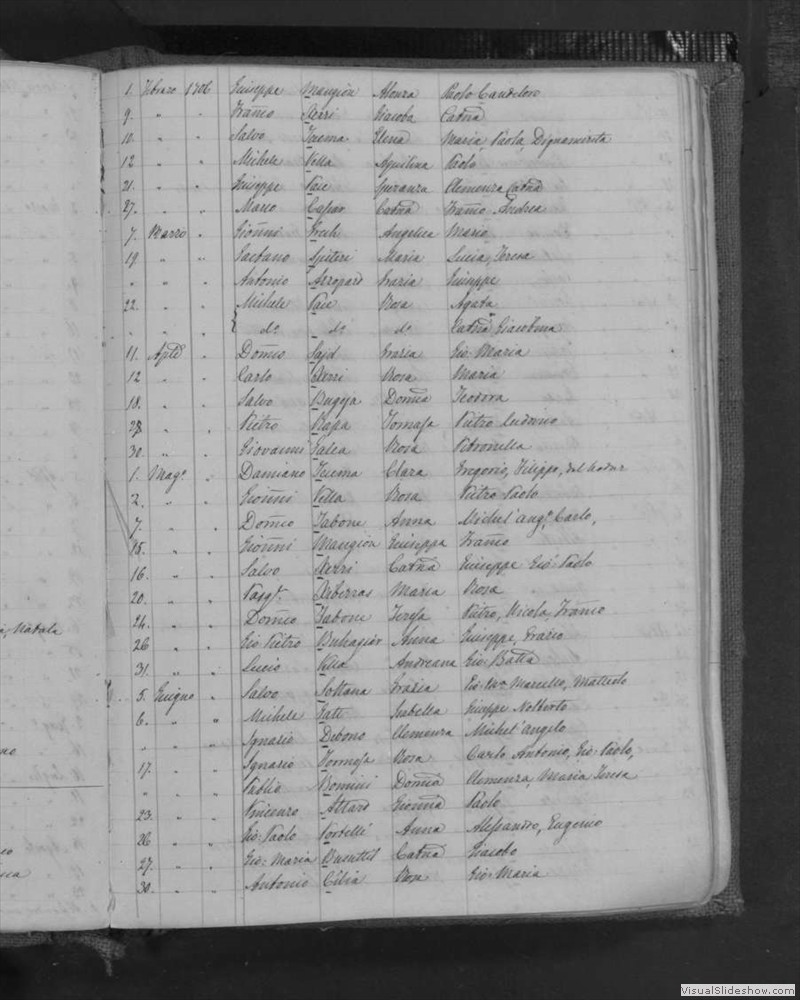 1. Febraro 1706 Giuseppe Mangion Alonza Paolo Candeloro
9. " " Franco Xerri Giacoba Catna
10. " " Salvo Tuema Elena Maria, Paola
12 " " Michele Vella Aquilina Paolo
21. " " Giuseppe Pace Speranza Clemenza Catna
27. " " Mario Caspar Catna Franco Andrea
7. Marzo " Gionni Grech Angelica Mario
19. " " Gaetano Spiteri Maria Lucia, Teresa
" " " Antonio Azzopard Grazia Giuseppe
22. " " Michele Pace Rosa Agata
" " " do do do Catna Giacobina
11. Aple " Domco Sajd Grazia Gio: Maria
12 " " Carlo Xerri Rosa Maria
18. " " Salvo Bugeja Domca Teodora
28. " " Pietro Rapa Tomasa Pietro Ludovico
30. " Giovanni Galea Rosa Petronella
1. Mago " Damiano Tuema Clara Gregorio, Filippo,
2. " " Gionni Vella Rosa Pietro Paolo
7. " " Domco Tabone Anna Michel'angº, Carlo,
15. " " Gionni Mangion Giuseppa Franco
16. " " Salvo Xerri Catna Giuseppe Gio: Paolo
20. " " Maria Rosa
24. " " Domco Tabone Teresa Pietro, Nicola, Franco
26 " " Gio: Pietro Buhagiar Anna Giuseppe, Grazio
31. " " Lucio Vella Andreana Gio: Batta
5. Giugno " Salvo Soltana Grazia Gio: Marcello, Matteolo
6. " " Michele Gatt Isabella Giuseppe Nolberto
" " " Ignazio Debono Clemenza Michel'angelo
17. " " Ignazio Formosa Rosa Carlo Antonio, Gio: Paolo,
" " " Pablio Bonnici Domca Clemenza, Maria Teresa
23. " " Vincenzo Attard Gionna Paolo
26 " " Gio: Paolo Portelli Anna Alessandro, Eugenio
27. " " Gio: Maria Busuttil Catna Giacobo
30. " " Antonio Cilia Rosa Gio: Maria
VisualSlideshow.com